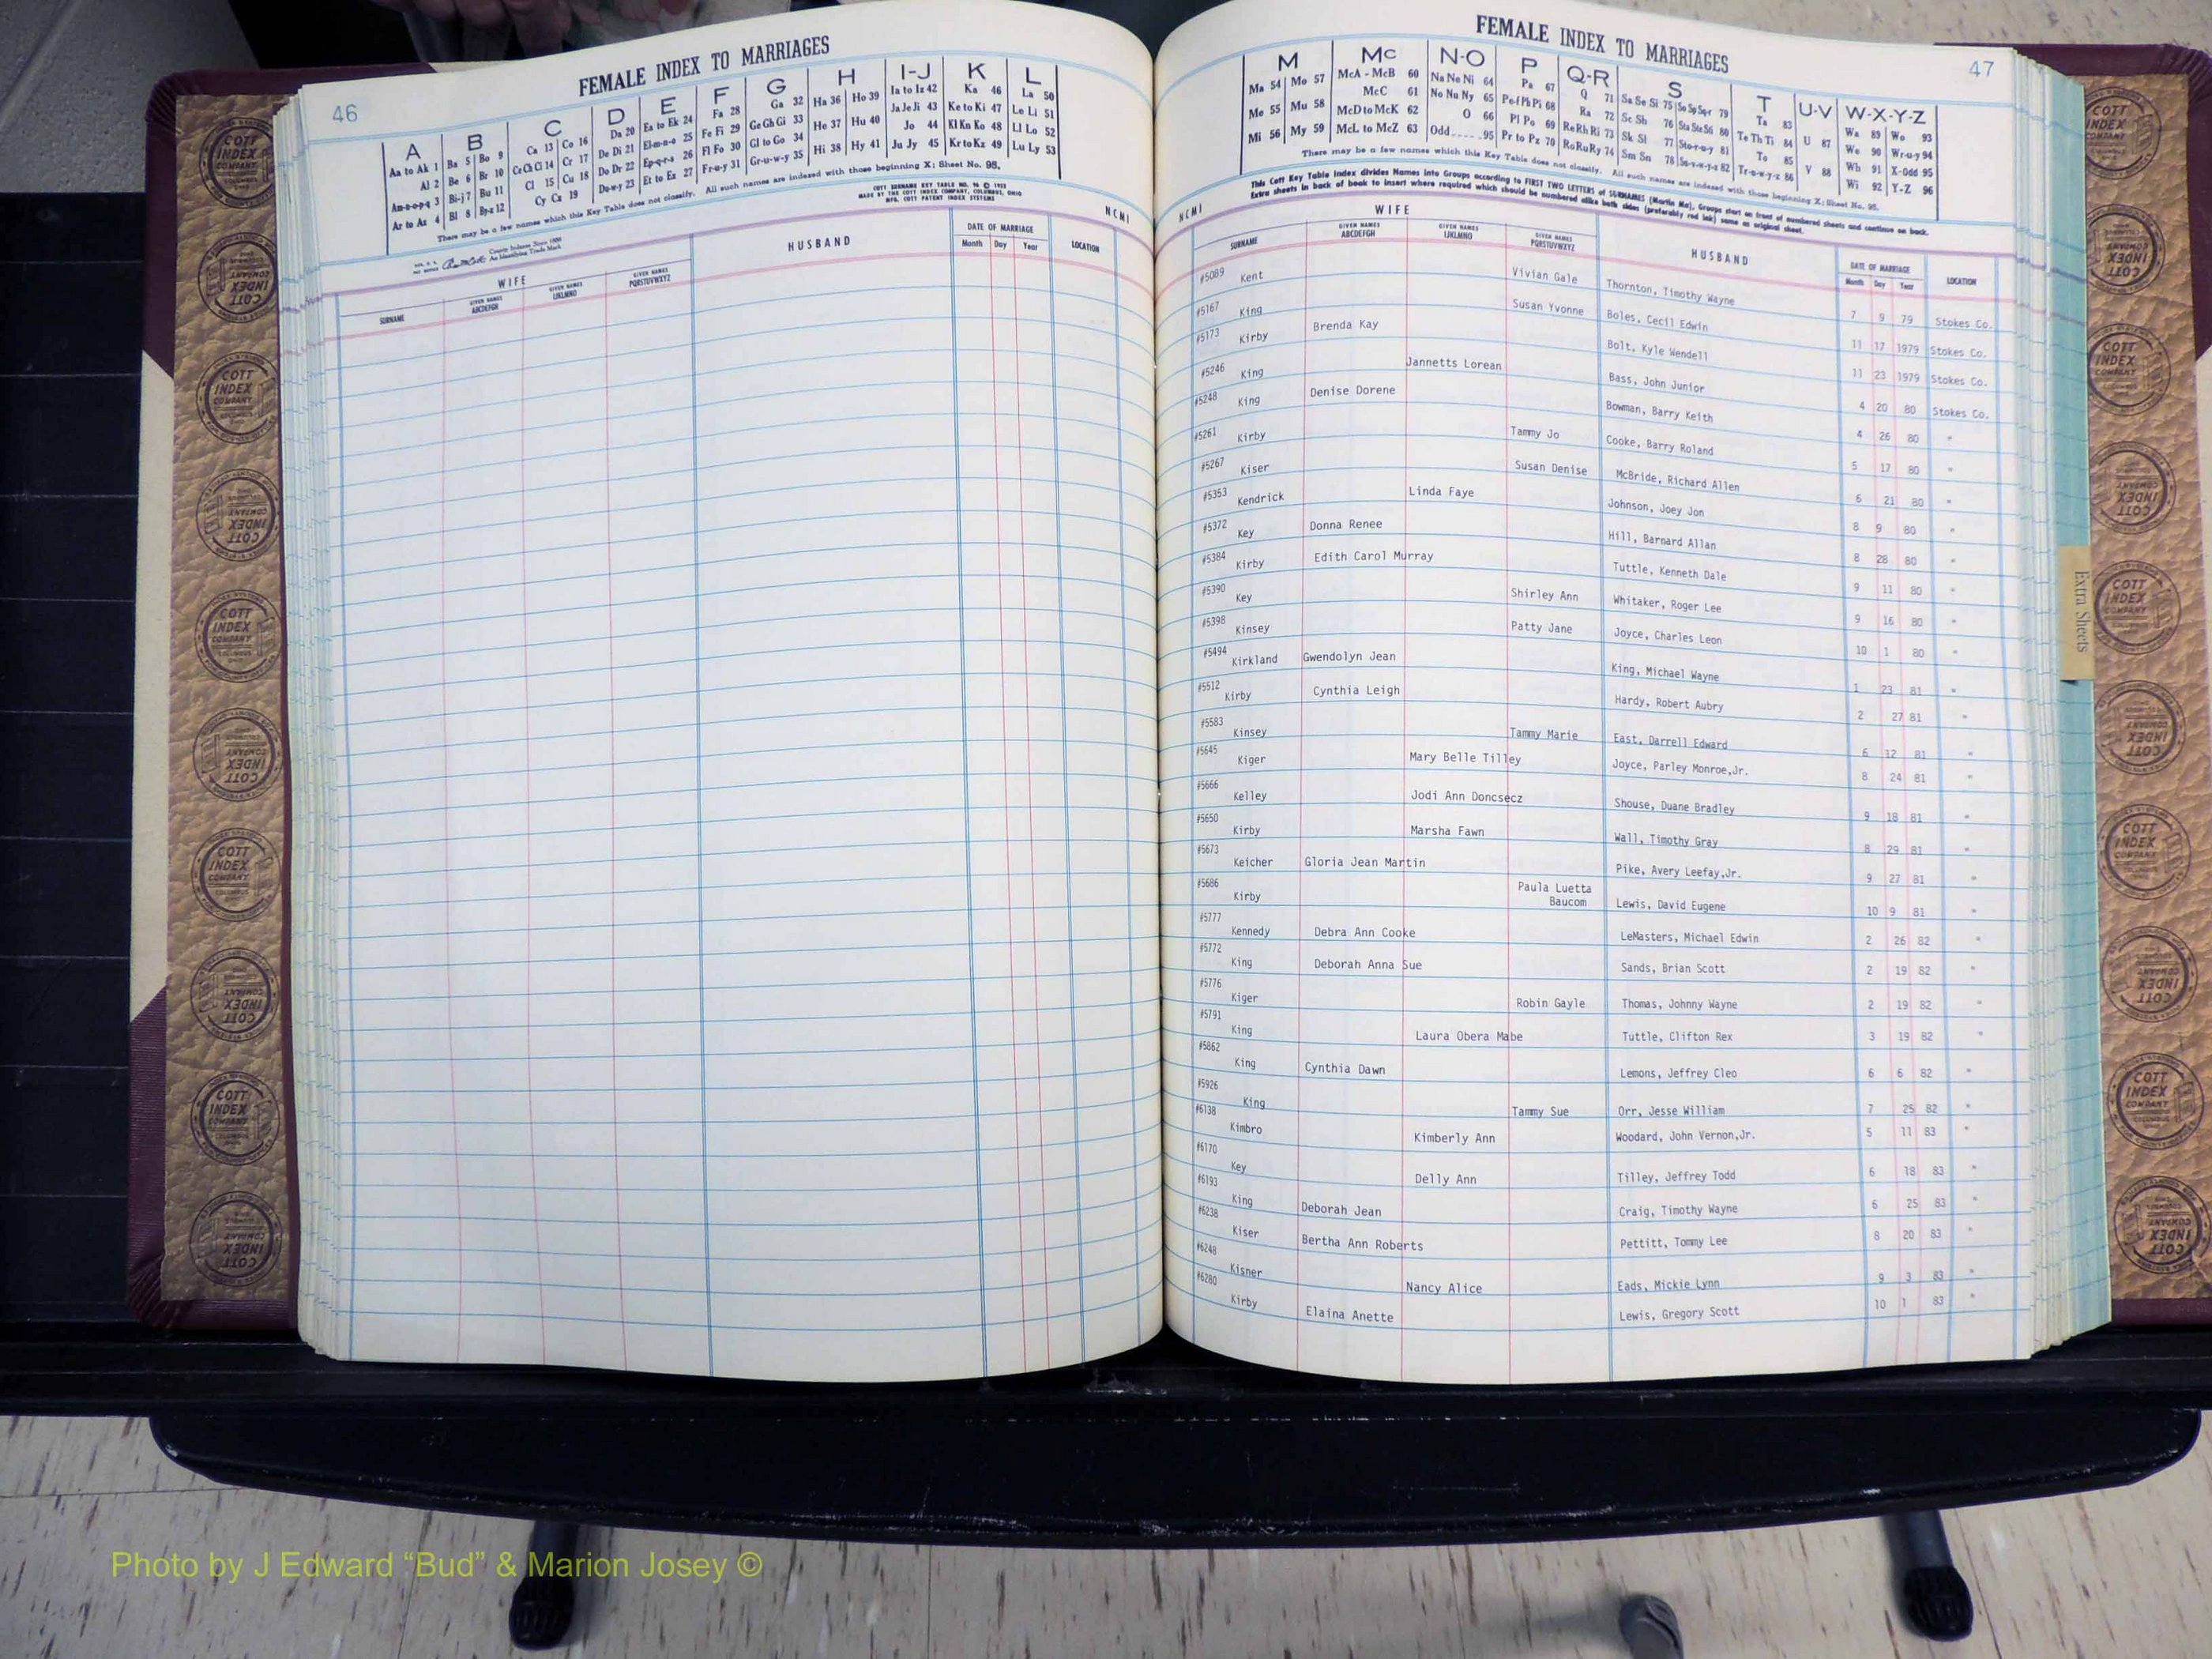 46
FEMALE INDEX TO MARRIAGES
A B C D E F G H I-J K L
Aa to Ak 1 Ba 5 Bo 9 Ca 13 Co 16 Da 20 Ea to Ek 24 Fa 28 Ga 32 Ha 36 Ho 39 Ia to Iz 42 Ka 46 La 50
Al 2 Be 6 Br 10 Ce Ch Ci 14 Cr 17 De Di 21 El-m-n-o 25 Fe Fi 29 Ge Gh Gi 33 He 37 Hu 40 Ja Je Ji 43 Ke to Ki 47 Le Li 51
Am-n-o-p-q 3 Bi-j 7 Bu 11 Cl 15 Cu 18 Do Dr 22 Ep-q-r-s 26 Fl Fo 30 Gl to Go 34 Hi 38 Hy 41 Jo 44 Kl Kn Ko 48 Ll Lo 52
Ar to Az 4 Bl 8 By-z 12 Cy Cz 19 Du-w-y 23 Et to Ez 27 Fr-u-y 31 Gr-u-w-y 35 Ju Jy 45 Kr to Kz 49 Lu Ly 53
There may be a few names which this Key Table does not classify. All such names are indexed with those beginning X; Sheet No. 95.
COTT SURNAME KEY TABLE NO. 96 © 1953
MADE BY THE COTT INDEX COMPANY, COLUMBUS, OHIO
MFG. COTT PATENT INDEX SYSTEMS
County Indexes Since 1888
An Identifying Trade Mark
NCMI
WIFE HUSBAND DATE OF MARRIAGE LOCATION
SURNAME GIVEN NAMES ABCDEFGH GIVEN NAMES IJKLMNO GIVEN NAMES PQRSTUVWXYZ Month Day Year
47
FEMALE INDEX TO MARRIAGES
M Mc N-O P Q-R S T U-V W-X-Y-Z
Ma 54 Mo 57 McA - McB 60 Na Ne Ni 64 Pa 67 Q 71 Sa Se Si 75 So Sp Sq 79 Ta 83 U 87 Wa 89 Wo 93
Me 55 Mu 58 McC 61 No Nu Ny 65 Pe-f Ph Pi 68 Ra 72 Sc Sh 76 Sta Ste Sti 80 Te Th Ti 84 V 88 We 90 Wr-u-y 94
Mi 56 My 59 McD to McK 62 O 66 Pl Po 69 Re Rh Ri 73 Sk Sl 77 Sto-r-u-y 81 To 85 Wh 91 X-Odd 95
McL to McZ 63 Odd 95 Pr to Pz 70 Ro Ru Ry 74 Sm Sn 78 Su-v-w-y-z 82 Tr-u-w-y-z 86 Wi 92 Y-Z 96
There may be a few names which this Key Table does not classify. All such names are indexed with those beginning X; Sheet No. 95.
This Cott Key Table Index divides Names into Groups according to FIRST TWO LETTERS of SURNAMES (Martin Ma), Groups start on front of numbered sheets and continue on back.
Extra sheets in back of book to insert where required which should be numbered alike both sides (preferably red ink) same as original sheet.
NCMI
WIFE HUSBAND DATE OF MARRIAGE LOCATION
SURNAME GIVEN NAMES ABCDEFGH GIVEN NAMES IJKLMNO GIVEN NAMES PQRSTUVWXYZ Month Day Year
#5089 Kent Vivian Gale Thornton, Timothy Wayne 7 9 79 Stokes Co.
#5167 King Susan Yvonne Boles, Cecil Edwin 11 17 1979 Stokes Co.
#5173 Kirby Brenda Kay Bolt, Kyle Wendell 11 23 1979 Stokes Co.
#5246 King Jannetts Lorean Bass, John Junior 4 20 80 Stokes Co.
#5248 King Denise Dorene Bowman, Barry Keith 4 26 80 "
#5261 Kirby Tammy Jo Cooke, Barry Roland 5 17 80 "
#5267 Kiser Susan Denise McBride, Richard Allen 6 21 80 "
#5353 Kendrick Linda Faye Johnson, Joey Jon 8 9 80 "
#5372 Key Donna Renee Hill, Barnard Allan 8 28 80 "
#5384 Kirby Edith Carol Murray Tuttle, Kenneth Dale 9 11 80 "
#5390 Key Shirley Ann Whitaker, Roger Lee 9 16 80 "
#5398 Kinsey Patty Jane Joyce, Charles Leon 10 1 80 "
#5494 Kirkland Gwendolyn Jean King, Michael Wayne 1 23 81 "
#5512 Kirby Cynthia Leigh Hardy, Robert Aubry 2 27 81 "
#5583 Kinsey Tammy Marie East, Darrell Edward 6 12 81 "
#5645 Kiger Mary Belle Tilley Joyce, Parley Monroe,Jr. 8 24 81 "
#5666 Kelley Jodi Ann Doncsecz Shouse, Duane Bradley 9 18 81 "
#5650 Kirby Marsha Fawn Wall, Timothy Gray 8 29 81 "
#5673 Keicher Gloria Jean Martin Pike, Avery Leefay,Jr. 9 27 81 "
#5686 Kirby Paula Luetta Baucom Lewis, David Eugene 10 9 81 "
#5777 Kennedy Debra Ann Cooke LeMasters, Michael Edwin 2 26 82 "
#5772 King Deborah Anna Sue Sands, Brian Scott 2 19 82 "
#5776 Kiger Robin Gayle Thomas, Johnny Wayne 2 19 82 "
#5791 King Laura Obera Mabe Tuttle, Clifton Rex 3 19 82 "
#5862 King Cynthia Dawn Lemons, Jeffrey Cleo 6 6 82 "
#5926 King Tammy Sue Orr, Jesse William 7 25 82 "
#6138 Kimbro Kimberly Ann Woodard, John Vernon,Jr. 5 11 83 "
#6170 Key Delly Ann Tilley, Jeffrey Todd 6 18 83 "
#6193 King Deborah Jean Craig, Timothy Wayne 6 25 83 "
#6238 Kiser Bertha Ann Roberts Pettitt, Tommy Lee 8 20 83 "
#6248 Kisner Nancy Alice Eads, Mickie Lynn 9 3 83 "
#6280 Kirby Elaina Anette Lewis, Gregory Scott 10 1 83 "
Extra Sheets
COTT INDEX COMPANY
Photo by J Edward “Bud” & Marion Josey ©